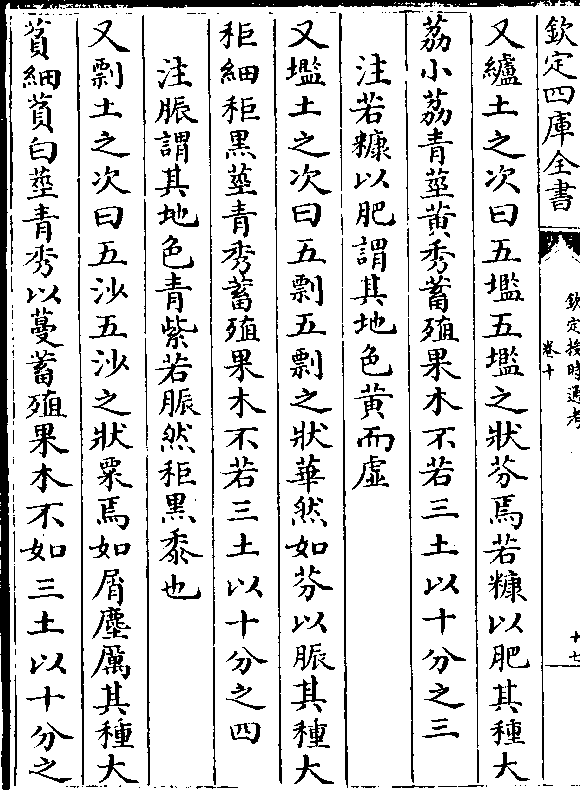 欽定四庫全書
欽定授時通考
卷十
十七
又纑土之次曰五壏五壏之狀芬焉若糠以肥其種大
荔小荔青莖黄秀蓄殖果木不若三土以十分之三
注若糠以肥謂其地色黄而虚
又壏土之次曰五剽五剽之狀華然如芬以脤其種大
秬細秬黑莖青秀蓄殖果木不若三土以十分之四
注脤謂其地色青紫若脤然秬黑黍也
又剽土之次曰五沙五沙之狀粟焉如屑塵厲其種大
萯細萯白莖青秀以蔓蓄殖果木不如三土以十分之